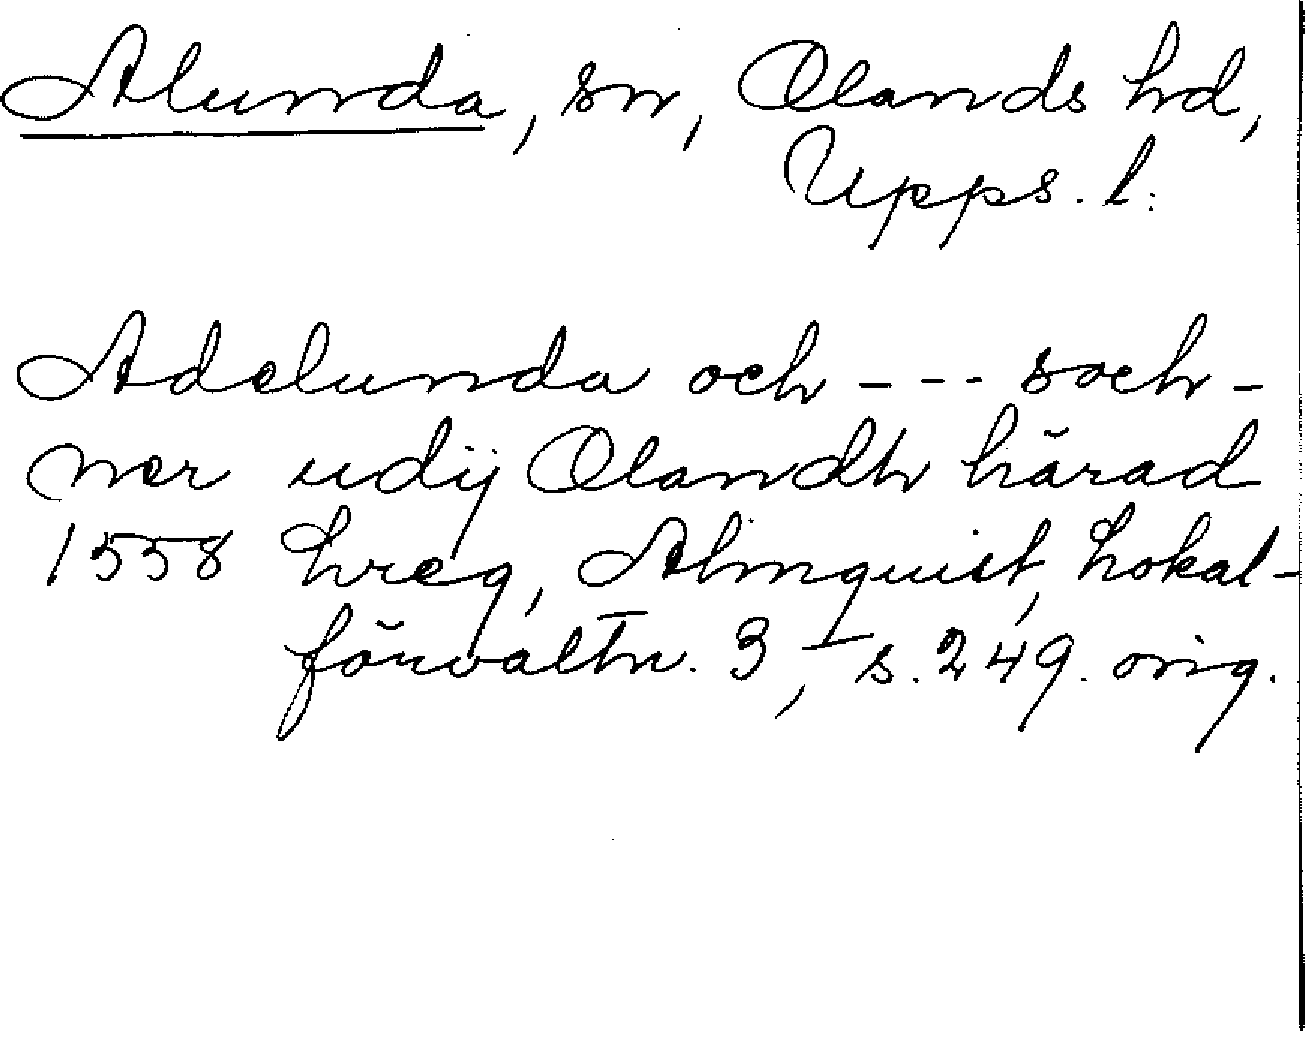 Alunda, sn, Olands hd,
Upps. l.
Adelunda och - - - soch-
ner udij Olandh härad
1558 hreg, Almquist, Lokal-
förvaltn. 3, s. 249. orig.